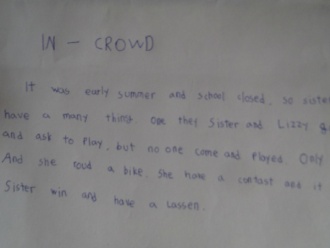 IN - CROWD
It was early summer and school closed, so sister
have a many things one they Sister and Lizzy
and ask to play, but no one come and played. Only
And she roud a bike, she have a contast and it
Sister win and have a Lassen.